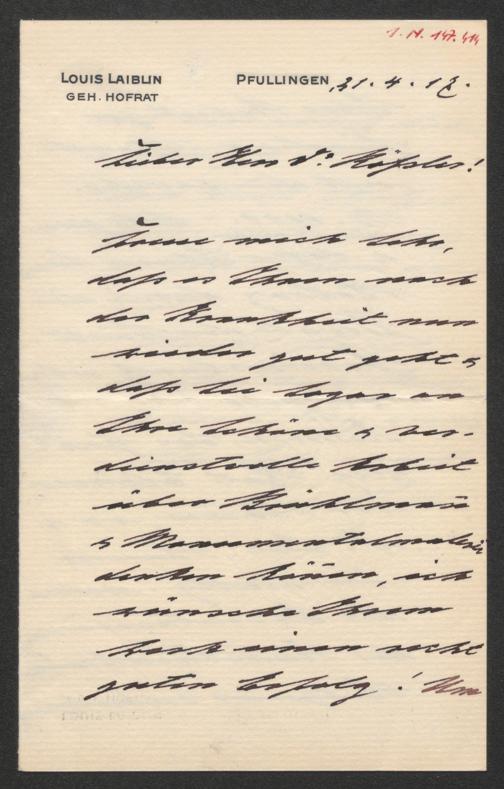 I. N. 147.414
LOUIS LAIBLIN
GEH. HOFRAT
PFULLINGEN, 21. 4. 17.
Lieber Herr Dr. Rößler!
Freue mich sehr,
daß es Ihnen nach
der Krankheit nun
wieder gut geht &
daß Sie sogar an
Ihre schöne & ver-
dienstvolle Arbeit
über
& Monumentalmalerei
denken können, ich
wünsche Ihrem
Werk einen recht
guten Erfolg! Um